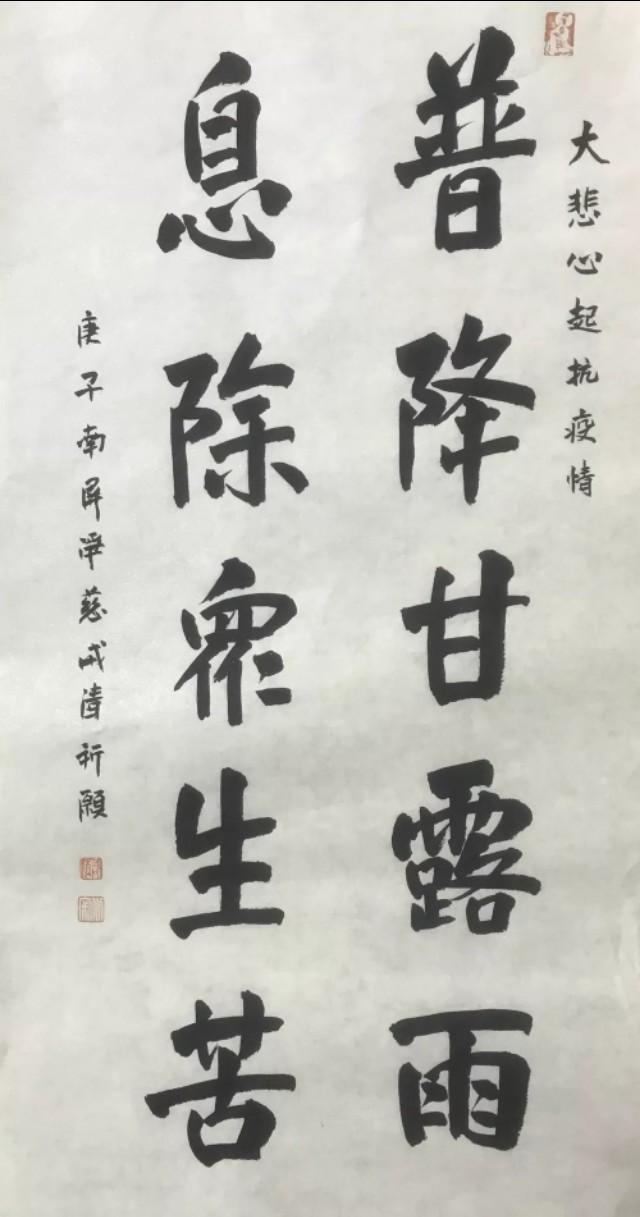 大悲心起抗疫情
普降甘露雨
息除眾生苦
庚子南屏淨慈戒清祈願